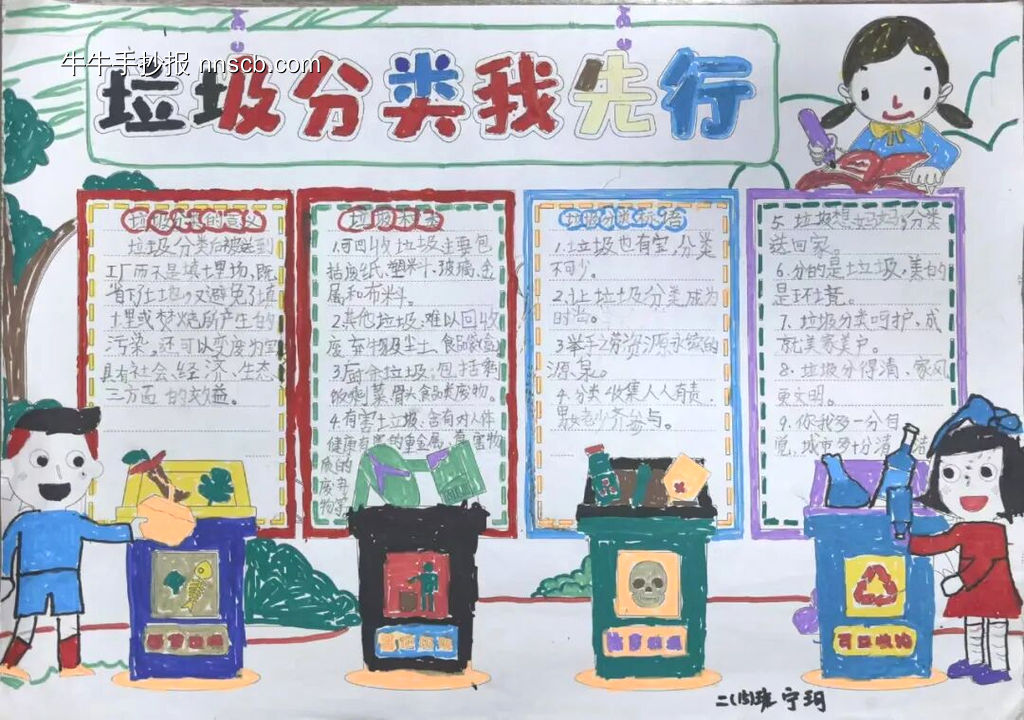 牛牛手抄报 nnscb.com
垃圾分类我先行
垃圾分类的意义
垃圾分类后被送到
工厂而不是填土里场,既
省了土地,又避免了填
埋或焚烧所产生的
污染,还可以变废为宝
具有社会、经济、生态
三方面的效益。
垃圾种类
1.可回收垃圾主要包
括废纸、塑料、玻璃、金
属和布料。
2.其他垃圾:难以回收
废弃物及尘土、食品袋
3.厨余垃圾:包括剩
饭剩菜骨头食品类废物。
4.有害土垃圾:含有对人体
健康有害的重金属、有害物
质的
废弃
物等
垃圾分类标语
1.垃圾也有家,分类
不可少。
2.让垃圾分类成为
时尚。
3举手之劳资源永续的
源泉。
4.分类收集人人有责,
男女老少齐参与。
5.垃圾想妈妈分类
送回家。
6.分的是垃圾,美的
是环境。
7.垃圾分类呵护,成
就美家美户。
8.垃圾分得清,家风
更文明。
9.你我多一分自
觉,城市多十分清洁
厨余垃圾
其他垃圾
有害垃圾
可回收物
二(15)班 宁玥